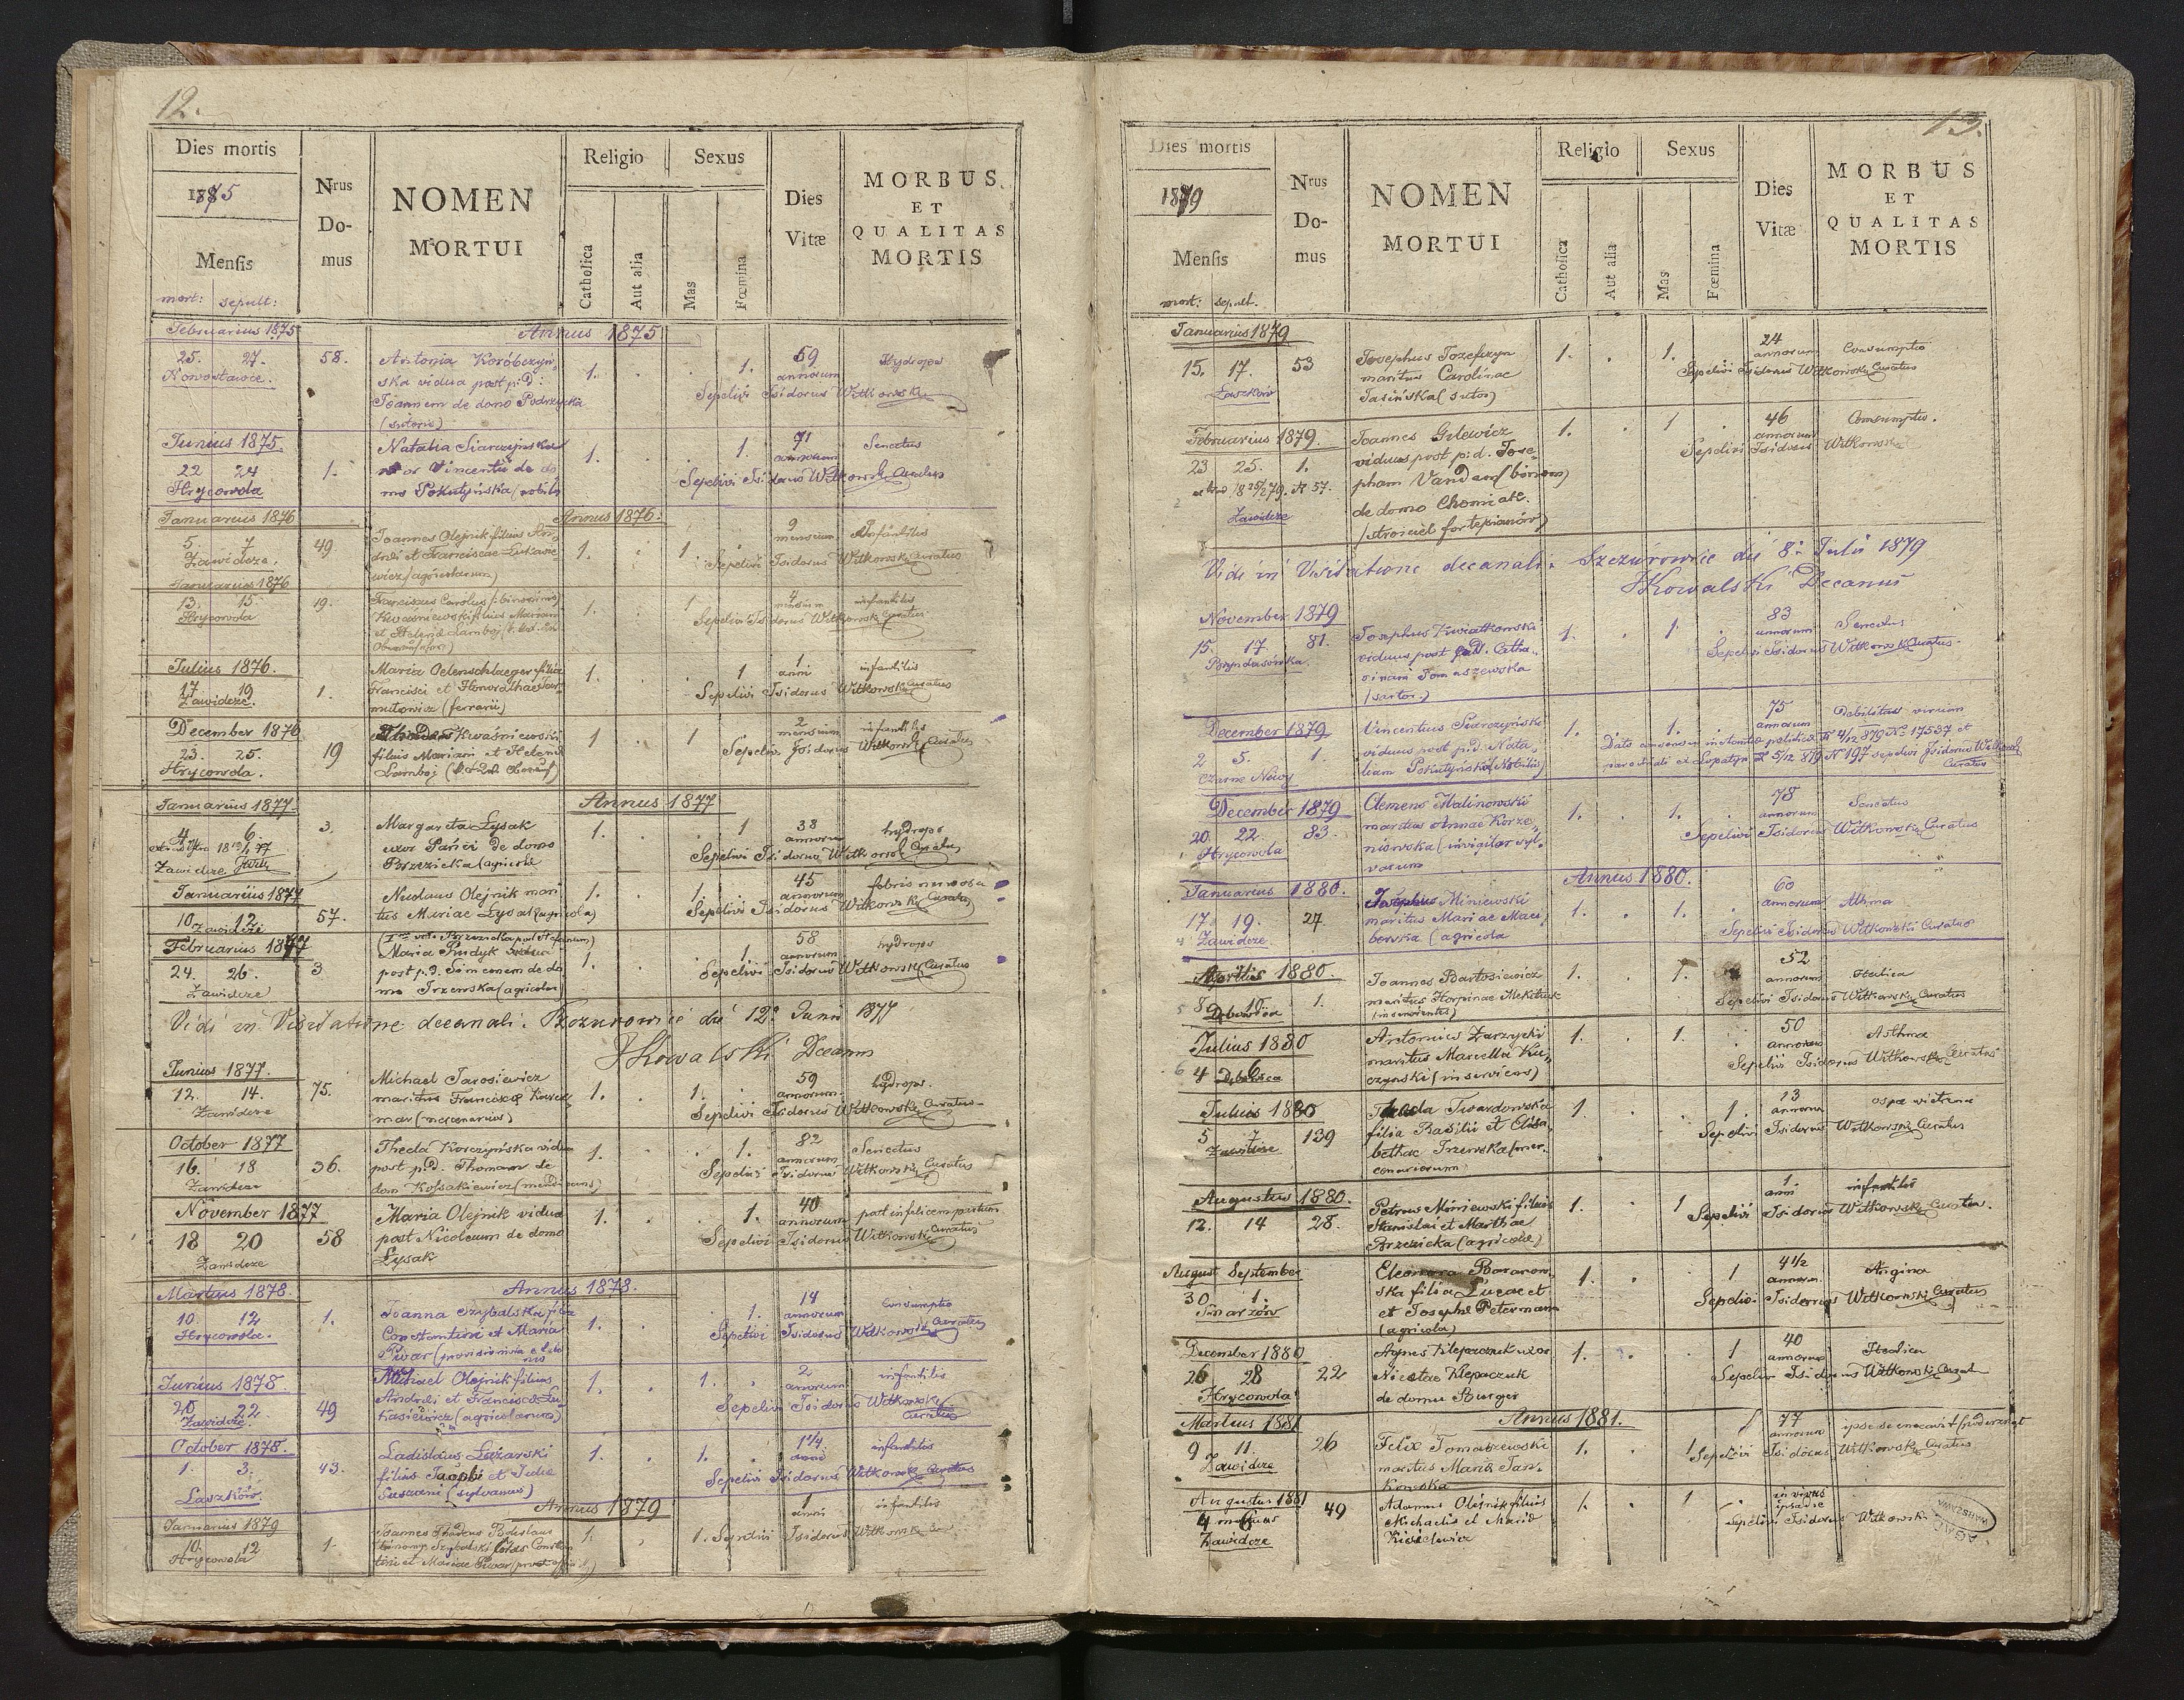 12.
Dies mortis
1875
Mensis
mort: sepult:
Nrus
Do-
mus
NOMEN
MORTUI
Religio
Catholica
Aut alia
Sexus
Mas
Fœmina
Dies
Vitæ
MORBUS
ET
QUALITAS
MORTIS
Februarius 1875
Annus 1875
25. 27. 58. Antonia Koróbczyń- 1. . . 1. 59 Hydrops
Nowostawce. ska vidua post p: D: annorum
Joannem de domo Podrzycka Sepelivi Isidorus Witkowski
(sutoris)
Junius 1875. Natalia Siarczyńska 1. 71 Senectus
22 24 1. Vincentii de do 1. annorum
Hrycowola mo Pokutyńska (nobilis Sepelivi Isidorus Witkowski Curatus
Januarius 1876
Annus 1876.
5. 7 49. Joannes Olejnik filius An- 1. . 1 9 Infantilis
Zawidcze. drei et Franciscae Łukasie mensium
wicz (agricolarum) Sepelivi Isidorus Witkowski Curatus
Januarius 1876
13. 15 19. Franciscus Carolus (: binomins) 1. 1 4 infantilis
Hrycowola Kwaśniewski filius Mariani mensium
et Helenae Łamboj Sepelivi Isidorus Witkowski Curatus
Julius 1876. Maria Oelenschlaeger filia 1. . . 1 1 infantilis
17 19 1. Francisci et Honorathae Jar- anni
Zawidcze. mutowicz (ferrarii) Sepelivi Isidorus Witkowski Curatus
December 1876 2 infantilis
23. 25. 19 Kwaśniewski 1 . 1 mensium
Hrycowola. filius Mariani et Helenae Sepelivi Isidorus Witkowski Curatus
Łamboj
Annus 1877
Januarius 1877.
4 6. 3. Margareta Łysak 1. . . 1 38 hydrops
uxor Pańci de domo annorum
Zawidcze Brzezicka (agricola Sepelivi Isidorus Witkowski Curatus
Januarius 1877 Nicolaus Olejnik mari 1. . 1. 45 febris nervosa
10 12. 57. tus Mariae Łysak (agricola) annorum
Zawidcze Sepelivi Isidorus Witkowski Curatus
Februarius 1877 Maria Pundyk vidua 58 hydrops
24. 26. 3 post p.D. Simeonem de do 1. . . 1. annorum
Zawidcze mo Trzewska (agricolae) Sepelivi Isidorus Witkowski Curatus
Vidi in Visitatione decanali. die 12a Junii 1877
JKowalski Decanus
Junius 1877.
12. 14. 75. Michael Jarosiewicz 1. . 1. 59 hydrops.
Zawidcze maritus Franciscae annorum
mar (mercenarius) Sepelivi Isidorus Witkowski Curatus
October 1877 Thecla Korczyńska vidua 1. . . 1. 82 Senectus
16. 18 36. post p.D. Thomam de annorum
Zawidcze dom Kossakiewicz Sepelivi Isidorus Witkowski Curatus
November 1877 Maria Olejnik vidua 1. . . 1. 40 post infelicem partum
18 20 58 post Nicoleum de domo annorum
Zawidcze Łysak Sepelivi Isidorus Witkowski Curatus
Annus 1878.
Martius 1878.
10. 12 1. Joanna Szybalska filia 1. . . 1. 14 Consumptio
Hrycowola. Constantini et Maria annorum
Piwar Sepelivi Isidorus Witkowski Curatus
Junius 1878. Michael Olejnik filius 1. . 1. 2 infantilis
20 22. 49 Andrei et Francisca Łu- annorum
Zawidcze. kasiewicz (agricolarum) Sepelivi Isidorus Witkowski Curatus
October 1878. Ladislaus Łazarski 1. . 1. 1 1/4. infantilis
1. 3. 43. filius Jacobi et Julie anni
Laszków. Suszani (sylvanus) Sepelivi Isidorus Witkowski Curatus
Annus 1879
Januarius 1879 1 infantilis
10. 12 1. Joannes Thadeus 1. . 1. anni
Hrycowola Szybalski filius Constan- Sepelivi Isidorus Witkowski Cur.
tini et Mariae Piwar
13.
Dies mortis
1879
Mensis
mort: sepult.
Nrus
Do-
mus
NOMEN
MORTUI
Religio
Catholica
Aut alia
Sexus
Mas
Fœmina
Dies
Vitæ
MORBUS
ET
QUALITAS
MORTIS
Januarius 1879
15. 17. 53 Josephus Jozefczyn 1. . 1. 24 Consumptio
Laszków maritus Carolinae annorum
Jasińska (sutor) Sepelivi Isidorus Witkowski Curatus
Februarius 1879. Joannes Gilewicz 1. . 1 . 46 Consumptio.
23 25. 1. viduus post p.d. Jose- annorum
N 57. pham Vandam (binom) Sepelivi Isidorus Witkowski
Zawidcze de domo Chomiak.
(stroiciel fortepianów)
Vidi in Visitatione decanali. Szczurowice die 8a Julii 1879
JKowalski Decanus
November 1879
15. 17 81. Josephus Kwiatkowski 1. . 1. . 83 Senectus
viduus post p.D. Catha- annorum
rinam Tomaszewska Sepelivi Isidorus Witkowski Curatus.
(sartor.)
December 1879 Vincentius Siarczyński 1. . 1. 75 Debilitas virium
2 5. 1. viduus post p.d. Nata- annorum
liam Pokutyńska (Nobilis) Dato consensu politico 4/12 879 No 17537 et
5/12 879 N 197 sepelivi Isidorus Witkowski
Curatus
December 1879 Clemens Malinowski 1. . 1. . 78 Senectus
20. 22. 83. maritus Annae Korze- annorum
Hrycowola niowska (invigilator syl- Sepelivi Isidorus Witkowski Curatus
varum
Annus 1880.
Januarius 1880. Josephus Miniewski 1. . 1. . 60 Athma
17. 19. 27 maritus Mariae Maci- annorum
Zawidcze borska (agricola Sepelivi Isidorus Witkowski Curatus
Aprilis 1880. Joannes Bartosiewicz 1. . 1. 52
8 10 1. maritus Horpinae Mekituk annorum
(inservientes) Sepelivi Isidorus Witkowski Curatus
Julius 1880 Antonius Zarzycki 1. . 1. . 50 Asthma
4 6 maritus Marcella Ku- annorum
czynski (inserviens) Sepelivi Isidorus Witkowski Curatus
Julius 1880 Thecla Twardowska 1. . . 1. 13 ospa wietrzna
5 7 139 filia Basilii et Elisa- annorum
Zawidcze bethae Trzewska (mer- Sepelivi Isidorus Witkowski Curatus
cenariorum
Augustus 1880. Petrus Miniewski filius 1. . 1 1 infantilis
12. 14 28. Stanislai et Marthae anni
Brzezicka (agricolae) Sepelivi Isidorus Witkowski Curatus.
August September Eleonora Baranow- 1. . . 1 4 1/2 Angina
30 1. ska filia Lucae et annorum
Smarzów et Josepha Peterman Sepelivi Isidorus Witkowski Curatus
(agricola)
December 1880 Agnes Klepaczuk uxor 1. . . 1 40
26 28 22 Nicetae Klepaczuk annorum
Hrycowola de domu Burger Sepelivi Isidorus Witkowski Curat
Annus 1881.
Martius 1881 77
9 11. 26 Felix Tomaszewski 1. . 1 annorum
Zawidcze maritus Maria Jan- Sepelivi Isidorus Witkowski Curatus
kowska
Augustus 1881 49 Adamus Olejnik filius 1. . 1
4 6 Michaelis et Maria Sepelivi Isidorus Witkowski
Zawidcze
AGAD
WARSZAWA